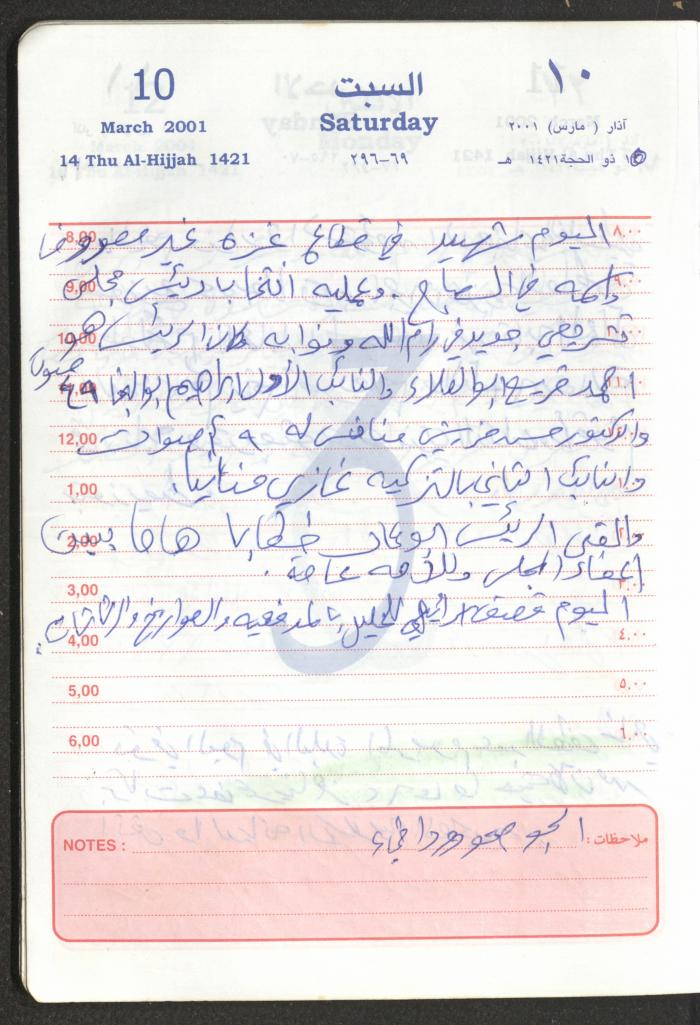 10 السبت ١٠
March 2001 Saturday آذار ( مارس ) ٢٠٠١
14 Thu Al-Hijjah 1421 ٦٩-٢٩٦ ذو الحجة ١٤٢١ هـ
8,00 اليوم شهيد في قطاع غزه غير معروف ٨,٠٠
9,00 في الصباح . وعمليه انتخاب رئيس مجلس ٩,٠٠
10,00 تشريعي جديد في رام الله ونوابه كان الرئيس هو
احمد قريع ابو العلاء والنائب الأول ابراهيم ابو النجا ٤٩ صوت
12,00 والدكتور حسن خريشه منافس له ٩ أصوات
1,00 والنائب الثاني بالتزكيه غازي حنانيا.
2,00 والقى الرئيس ابو عمار خطابا هاما بين
اعضاء المجلس وللأمه عامة .
3,00 ٣,٠٠
اليوم قصف اسرائيلي للخليل بالمدفعيه والصواريخ والرشاشات.
4,00 ٤,٠٠
5,00 ٥,٠٠
6,00 ٦,٠٠
NOTES : ملاحظات : الجو صحو ودافيء